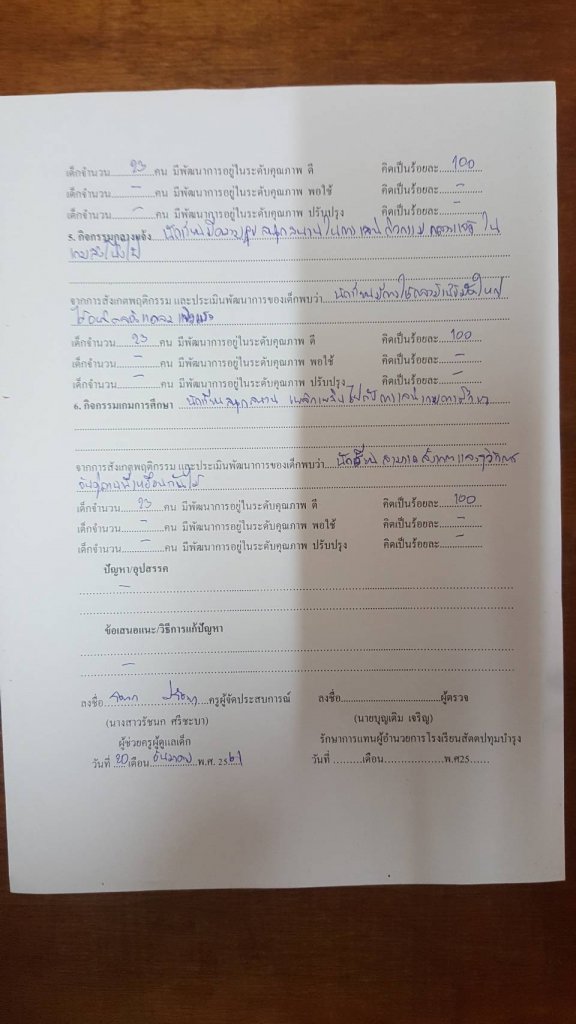 เด็กจำนวน......23......คน มีพัฒนาการอยู่ในระดับคุณภาพ ดี คิดเป็นร้อยละ....100......
เด็กจำนวน......–......คน มีพัฒนาการอยู่ในระดับคุณภาพ พอใช้ คิดเป็นร้อยละ....–......
เด็กจำนวน......–......คน มีพัฒนาการอยู่ในระดับคุณภาพ ปรับปรุง คิดเป็นร้อยละ....–......
5. กิจกรรมกลางแจ้ง นักเรียนมีความสุข สนุกสนานในการเล่น ใน
จากการสังเกตพฤติกรรม และประเมินพัฒนาการของเด็กพบว่า....นักเรียน
เด็กจำนวน......23......คน มีพัฒนาการอยู่ในระดับคุณภาพ ดี คิดเป็นร้อยละ....100......
เด็กจำนวน......–......คน มีพัฒนาการอยู่ในระดับคุณภาพ พอใช้ คิดเป็นร้อยละ....–......
เด็กจำนวน......–......คน มีพัฒนาการอยู่ในระดับคุณภาพ ปรับปรุง คิดเป็นร้อยละ....–......
6. กิจกรรมเกมการศึกษา นักเรียนสนุกสนาน เพลิดเพลินไปกับการเล่นเกมการศึกษา
จากการสังเกตพฤติกรรม และประเมินพัฒนาการของเด็กพบว่า....นักเรียนสามารถสังเกตและ
เด็กจำนวน......23......คน มีพัฒนาการอยู่ในระดับคุณภาพ ดี คิดเป็นร้อยละ....100......
เด็กจำนวน......–......คน มีพัฒนาการอยู่ในระดับคุณภาพ พอใช้ คิดเป็นร้อยละ....–......
เด็กจำนวน......–......คน มีพัฒนาการอยู่ในระดับคุณภาพ ปรับปรุง คิดเป็นร้อยละ....–......
ปัญหา/อุปสรรค
–
ข้อเสนอแนะ/วิธีการแก้ปัญหา
–
ลงชื่อ..........ครูผู้จัดประสบการณ์ ลงชื่อ..............................ผู้ตรวจ
(นางสาวรัชนก ศรีชะบา) (นายบุญเติม เจริญ)
ผู้ช่วยครูผู้ดูแลเด็ก รักษาการแทนผู้อำนวยการโรงเรียนสัดตปทุมบำรุง
วันที่ ...20...เดือน...ธันวาคม...พ.ศ. 25...61 วันที่ .........เดือน...................พ.ศ25......